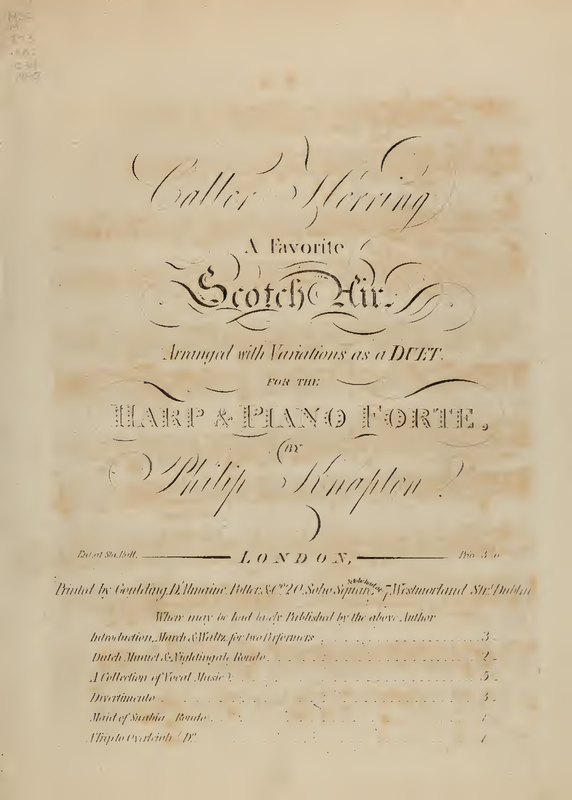 Caller Herring
A Favorite
Scotch Air.
Arranged with Variations as a DUET.
FOR THE
HARP & PIANO FORTE,
BY
Philip Knapton.
Ent. at Sta. Hall. LONDON, Price
Printed by Goulding, D'Almaine, Potter & Co. 20, Soho Square, 7, Westmorland Str. Dublin
Where may be had lately Published by the above Author
Introduction, March & Waltz, for two Performers 3 -
Dutch Minuet & Nightingale Rondo 2 -
A Collection of Vocal Music 5 -
Divertimento
Maid of Rondo
A Trip to Do.